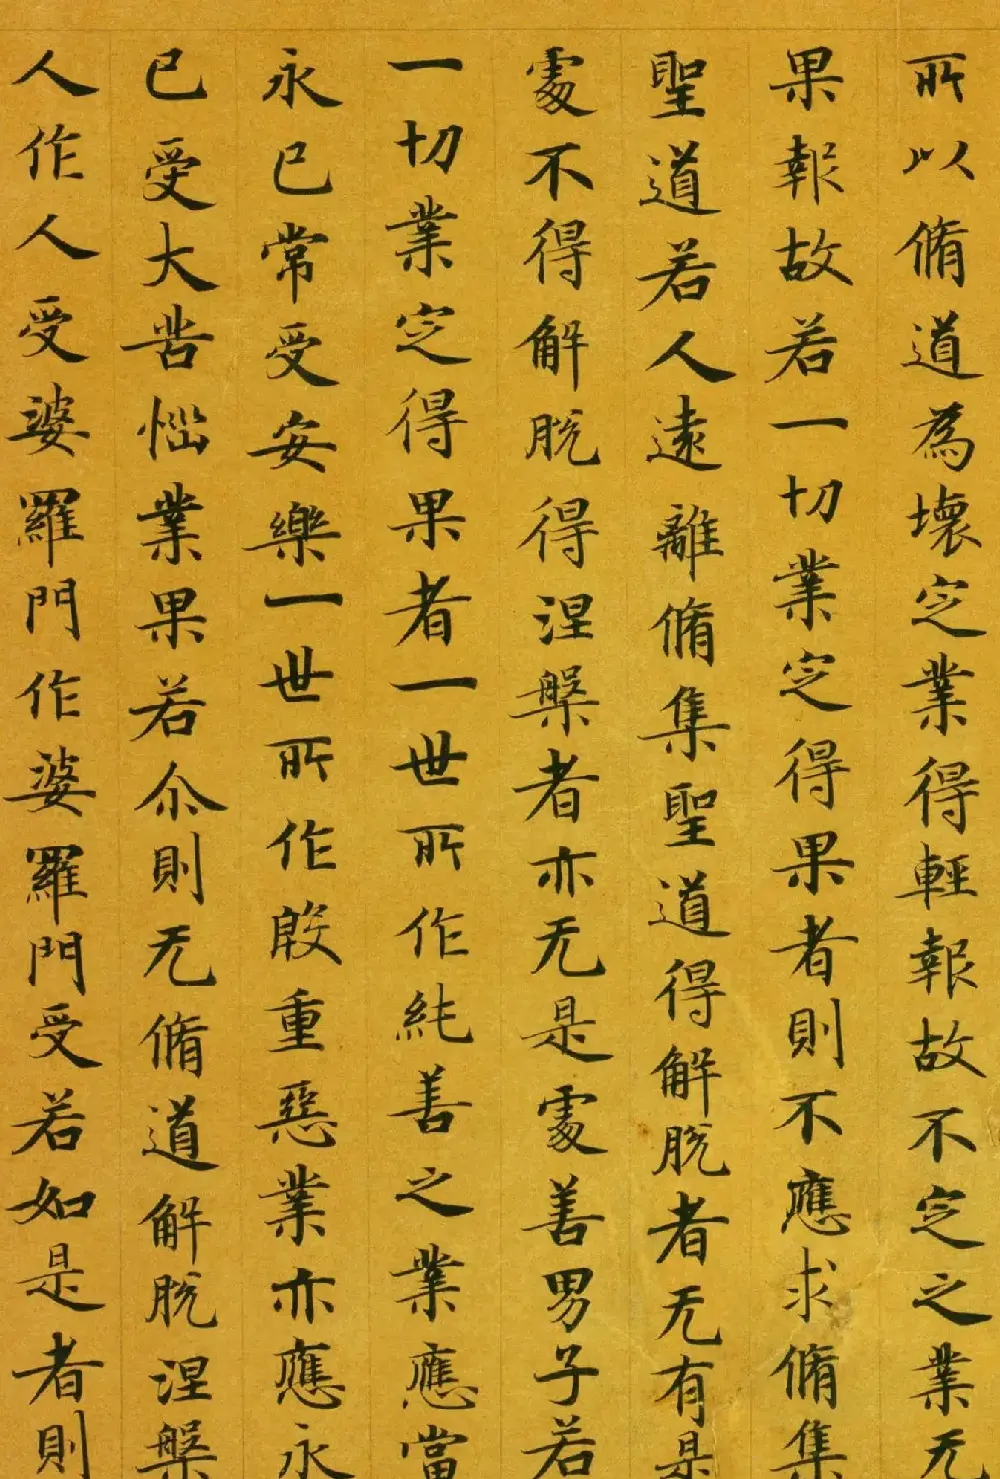 所以脩道為壞定業得輕報故不定之業无
果報故若一切業定得果者則不應求脩集
聖道若人遠離脩集聖道得解脫者无有是
處不得解脫得涅槃者亦无是處善男子若
一切業定得果者一世所作純善之業應當
永已常受安樂一世所作殷重惡業亦應永
已受大苦惱業果若尒則无脩道解脫涅槃
人作人受婆羅門作婆羅門受若如是者則